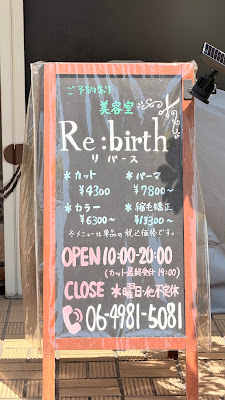 ご予約あり
美容室
Re:birth
リバース
*カット *パーマ
¥4300 ¥7800~
*カラー *縮毛矯正
¥6300~ ¥13300~
※メニューは単品の税込価格です。
OPEN 10:00-20:00
(カット最終受付 19:00)
CLOSE 水曜日・他不定休
06-4981-5081